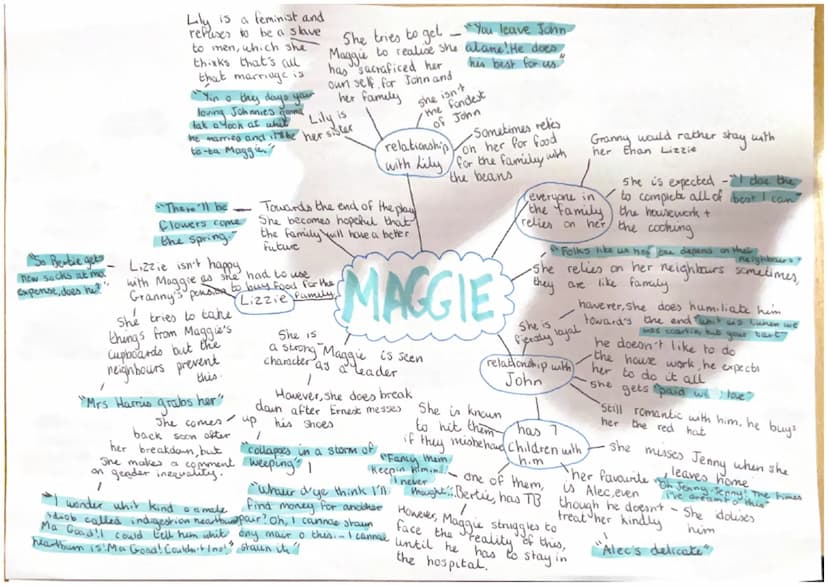 Lily is a feminist and
refuses to be a slave
to men, which she
thinks that's all
that marriage is
"Yin o they days your
loving Johnnies gonna
tak a look at whit
he married and it'll be
ta-ta Maggie."
Lily is
her sister
She tries to get
Maggie to realise she
has sacraficed her
own self, for John and
her family
"You leave John
alane! He does
his best for us"
she isn't
the fondest
of John
relationship
with Lily
Sometimes relies
on her for food
for the familiy with
the beans
Granny would rather stay with
her than Lizzie
everyone in
the family
relies on her
She is expected
to complete all of
the housework +
the cooking
"I dae the
best I can"
"Folks like us
depend on their
neighbours"
She relies on her neighbours sometimes,
they are like family
"There'll be
flowers come
the spring"
Towards the end of the play
She becomes hopeful that
the family will have a better
future
MAGGIE
"So Bertie gets
new socks at ma
expense, does he?"
Lizzie isn't happy
with Maggie as she had to use
Granny's pension to buy food for the
family
Lizzie
She tries to take
things from Maggie's
cupboards but the
neighbours prevent
this.
"Mrs Harris grabs her"
She is
a strong
character
Maggie is seen
as a leader
However, she does break
down after Ernest messes
up his shoes
She comes
back soon after
her breakdown, but
She makes a comment
on gender inequality.
"collapses in a storm of
weeping"
"Whaur d'ye think I'll
find money for another
pair? Oh, I cannae staun
ony mair o this.- I cannae
staun it"
"I wonder whit kind o a male
idiot called indigestion heartburn
Ma Good! I could tell him whit
heartburn is! Ma Good! Couldn't I no!"
relationship with
John
She is
fiercely loyal
however, she does humiliate him
toward's the end
he doesn't like to do
the house work, he expects
her to do it all
she gets "paid wi' love"
Still romantic with him, he buys
her the red hat
has 7
children with
him
She is known
to hit them
if they misbehave
one of them,
Bertie, has TB
"Fancy them
keepin him in!
I never
thought"
However, Maggie struggles to
face the reality of this,
until he has to stay in
the hospital.
her favourite
is Alec, even
though he doesn't
treat her kindly
She idolises
him
"Alec's delicate"
she misses Jenny when she
leaves home
"Oh Jenny, Jenny! The times
I've dreamt o' this"